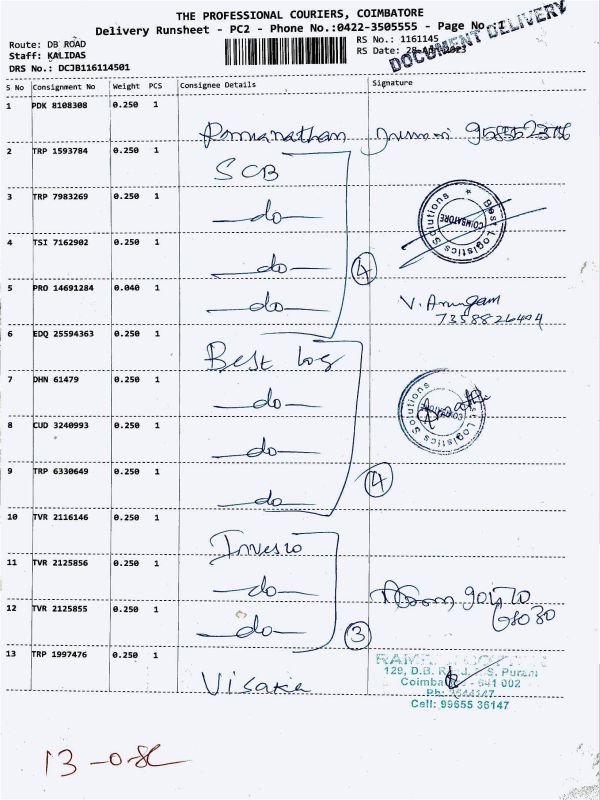 THE PROFESSIONAL COURIERS, COIMBATORE
Delivery Runsheet - PC2 - Phone No.:0422-3505555 - Page No.:1
DOCUMENT DELIVERY
Route: DB ROAD
RS No.: 1161145
Staff: KALIDAS
RS Date: 28- -2023
DRS No.: DCJB116114501
S No Consignment No Weight PCS Consignee Details Signature
1 PDK 8108308 0.250 1
2 TRP 1593784 0.250 1
SCB
3 TRP 7983269 0.250 1
do
4 TSI 7162902 0.250 1
do
4
5 PRO 14691284 0.040 1
do
Best Logistics Solutions
COIMBATORE
7358826404
6 EDQ 25594363 0.250 1
Best Log
7 DHN 61479 0.250 1
do
Best Logistics Solutions
8 CUD 3240993 0.250 1
do
9 TRP 6330649 0.250 1
do
4
10 TVR 2116146 0.250 1
11 TVR 2125856 0.250 1
do
12 TVR 2125855 0.250 1
do
3
13 TRP 1997476 0.250 1
Visaka
129, D.B. S. Puram
Coimba - 641 002
Ph:
Cell: 99655 36147
13